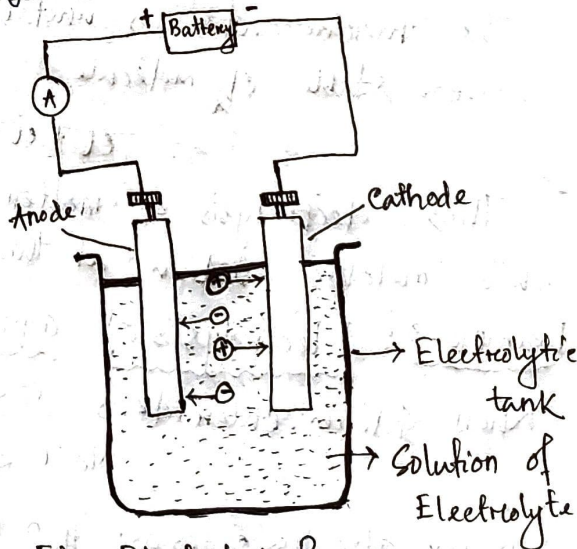 + Battery -
A
Anode
Cathode
+
-
+
-
Electrolytic
tank
Solution of
Electrolyte